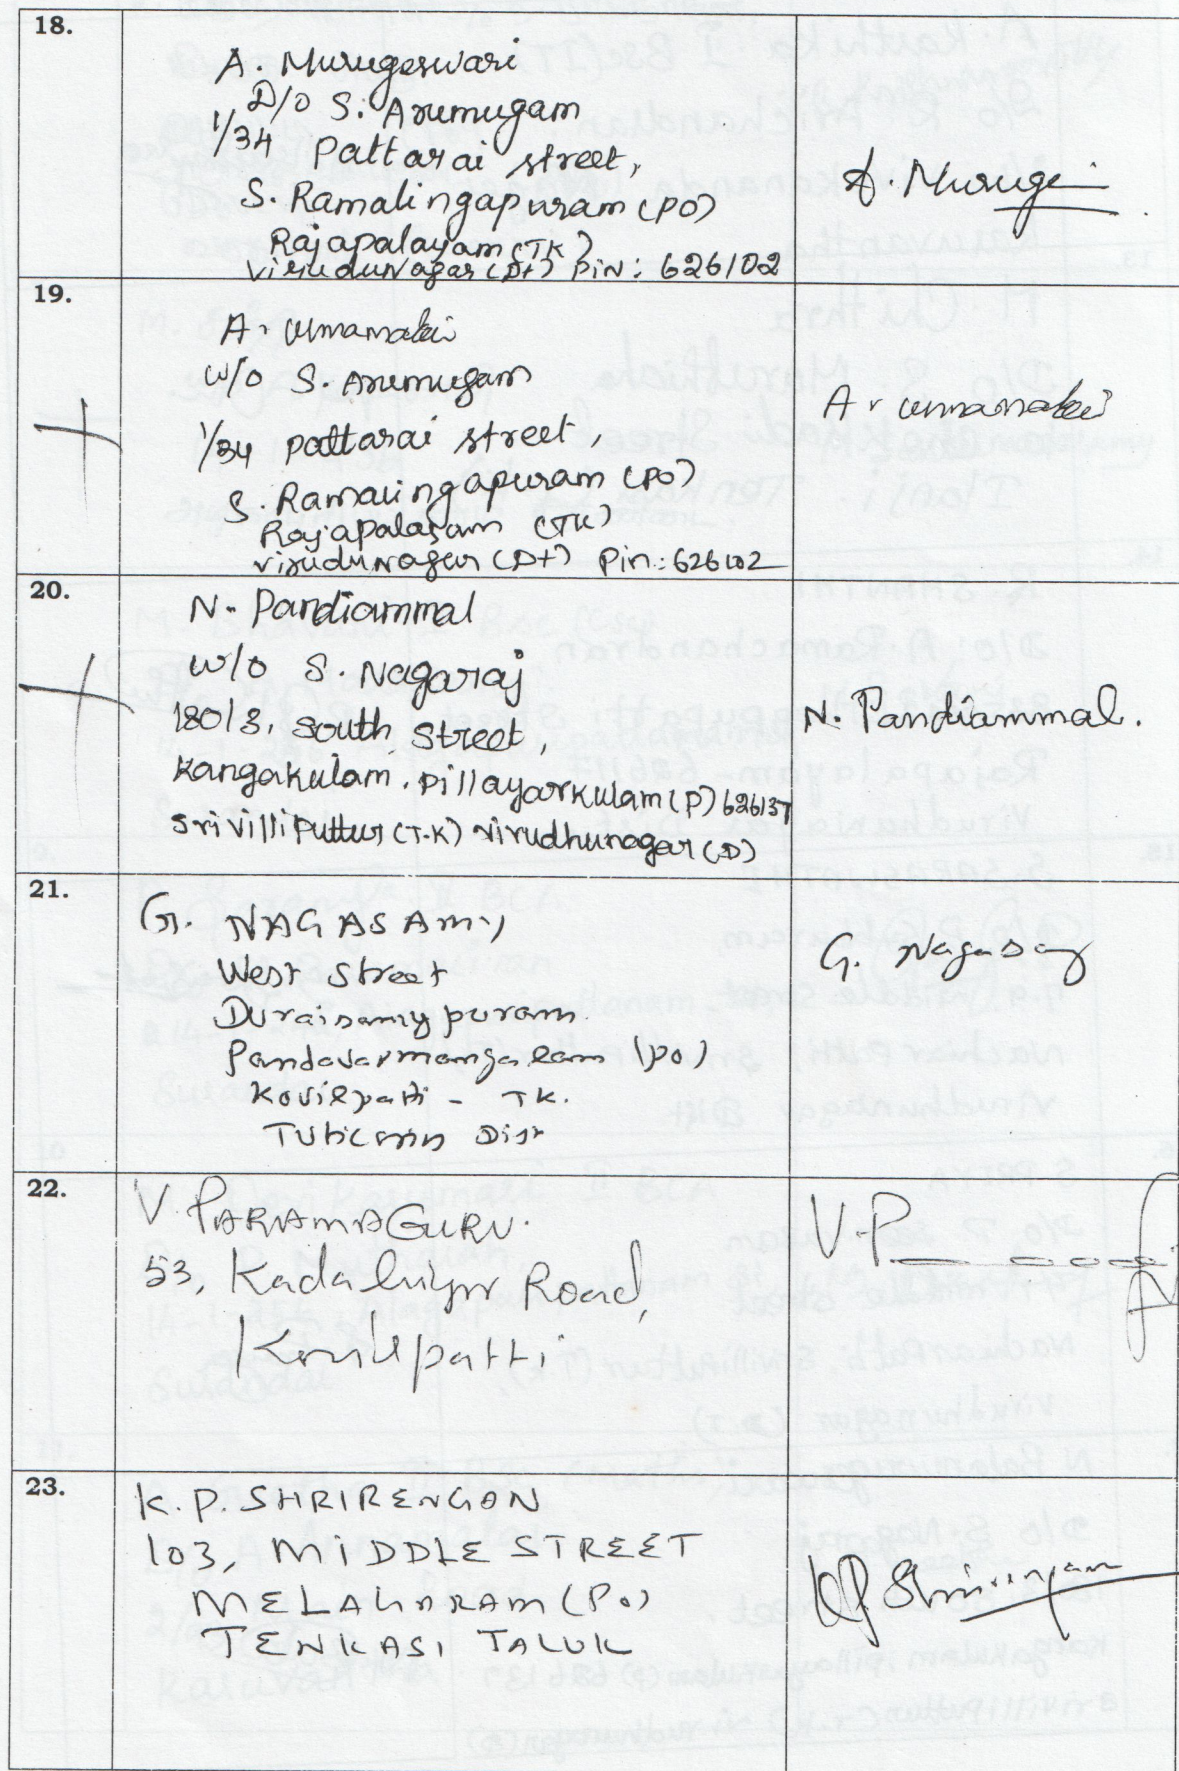 18.
A. Murugeswari
D/o S. Arumugam
1/34 Pattarai street,
S. Ramalingapuram (PO)
Rajapalayam (TK)
virudunagar (Dt) Pin: 626102
A. Muruge
19.
A. umamakei
W/o S. Arumugam
1/34 Pattarai street,
S. Ramalingapuram (PO)
Rajapalayam (TK)
virudunagar (Dt) Pin: 626102
A. umamakei
20.
N. Pandiammal
W/o S. Nagaraj
180/3, South Street,
Kangakulam. Pillayarkulam (P) 626137
Srivilliputtur (T.K) virudhunagar (D)
N. Pandiammal.
21.
G. NAGASAMY
West Street
Duraisamypuram.
Pandavarmangalam (PO)
Kovilpatti - TK.
Tuticorin Dist
G. Nagasamy
22.
V. PARAMAGURU.
53, Kadalaiyur Road,
Kovilpatti
V.P
23.
K.P. SHRIRENGAN
103, MIDDLE STREET
MELAGARAM (PO)
TENKASI TALUK
KP. Shrirengan